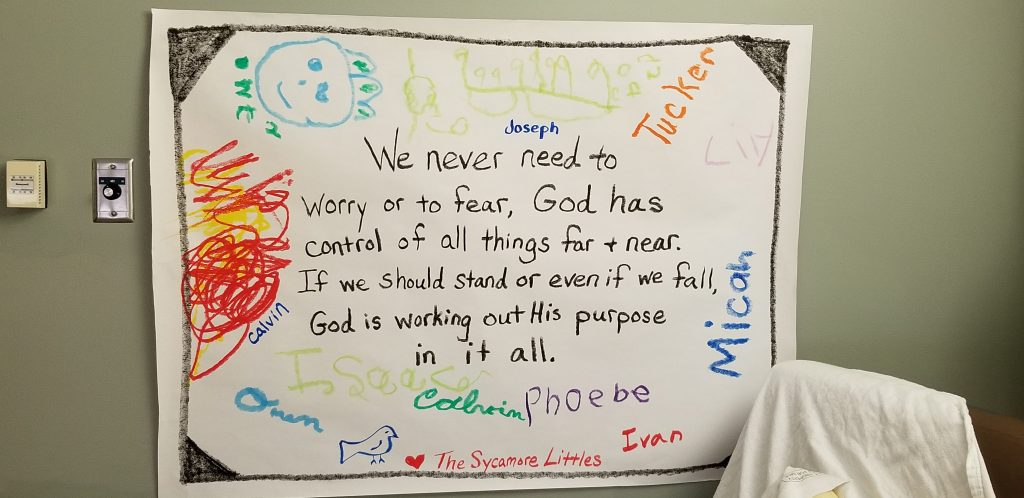 Owen
Joseph
Tucker
Liv
We never need to
worry or to fear, God has
control of all things far + near.
If we should stand or even if we fall,
God is working out His purpose
in it all.
Calvin
Micah
Isaac
Owen
Calvin
Phoebe
Ivan
♥ The Sycamore Littles